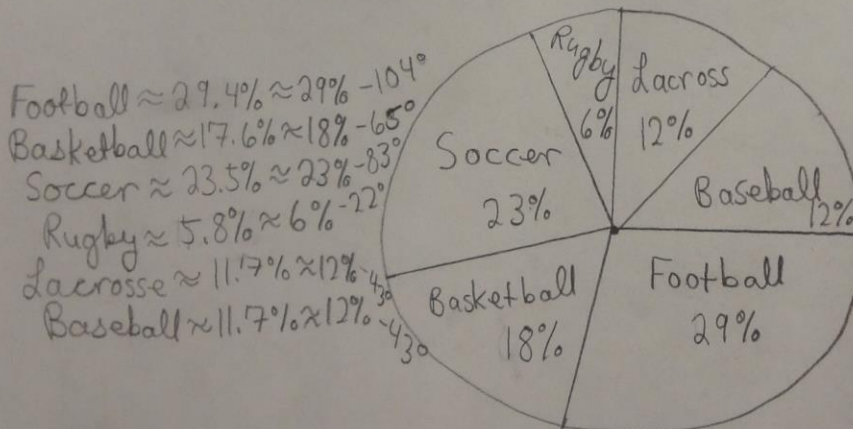 Football ≈ 29.4% ≈ 29% - 104°
Basketball ≈ 17.6% ≈ 18% - 65°
Soccer ≈ 23.5% ≈ 23% - 83°
Rugby ≈ 5.8% ≈ 6% - 22°
Lacrosse ≈ 11.7% ≈ 12% - 43°
Baseball ≈ 11.7% ≈ 12% - 43°
Rugby
6%
Lacross
12%
Soccer
23%
Baseball
12%
Basketball
18%
Football
29%